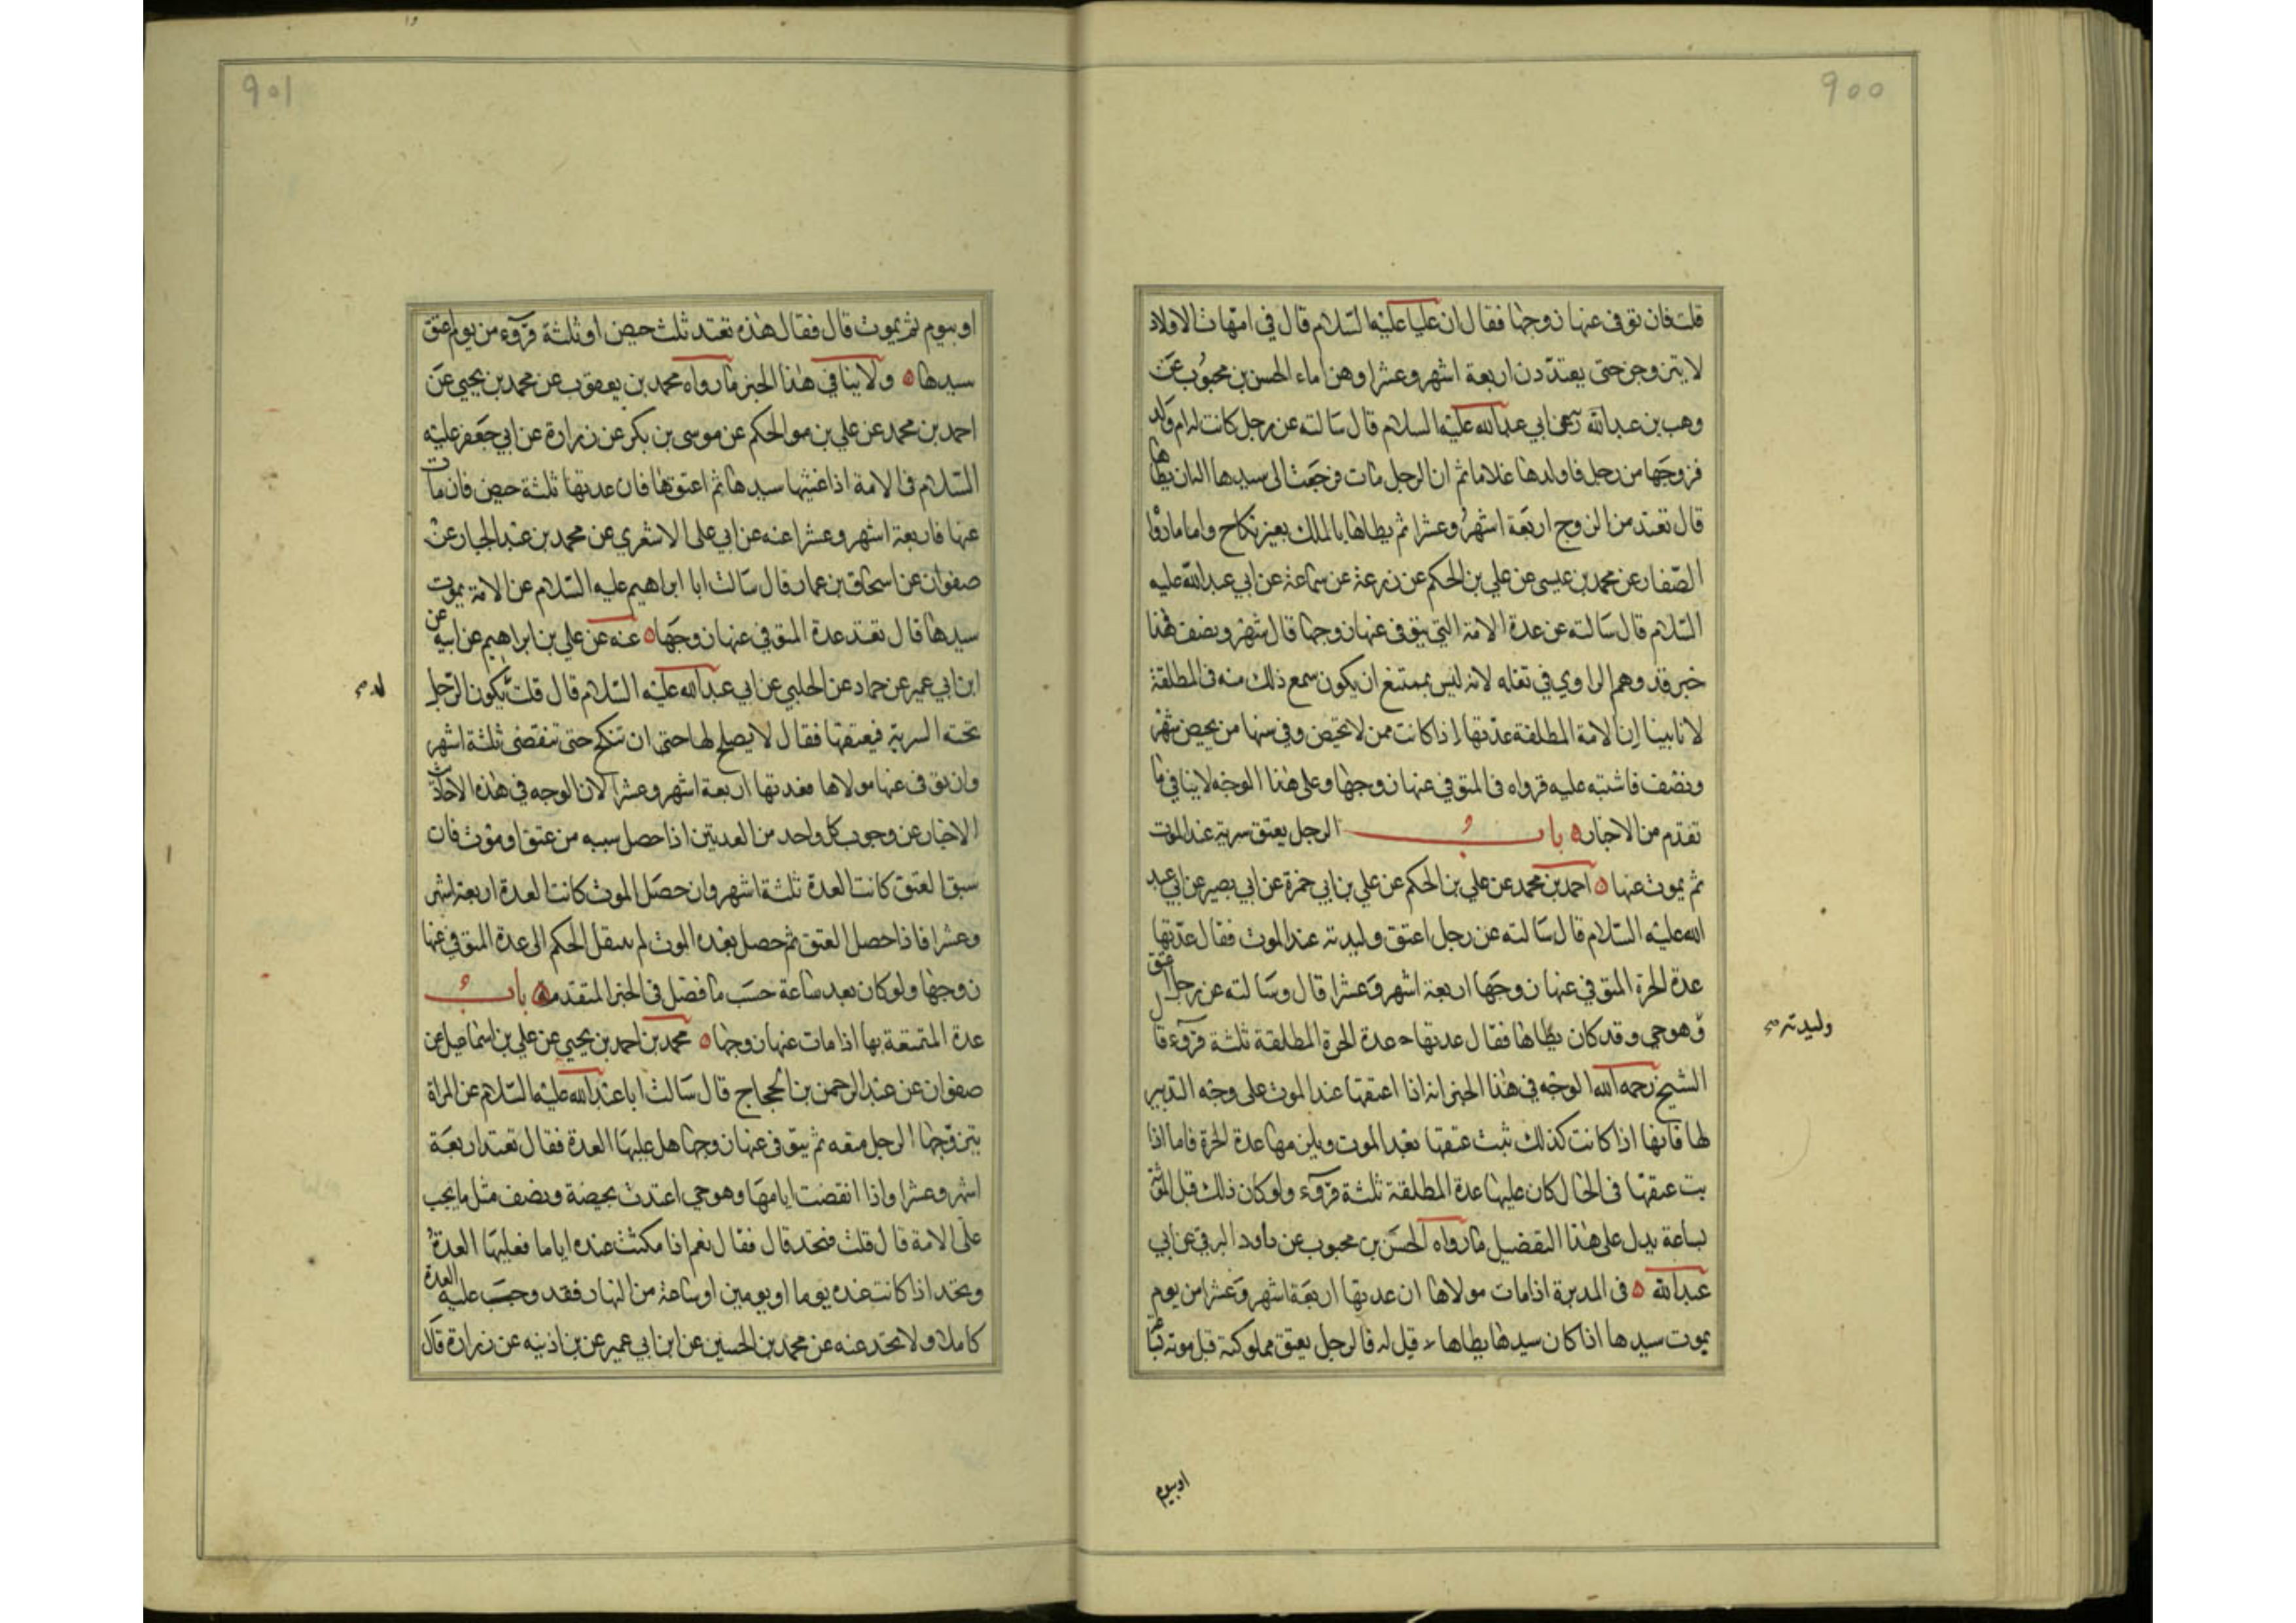 ٩٠٠
قلت فان توفى عنها زوجها فقال ان عليا عليه السلام قال في امهات الاولاد
لا يتزوجن حتى يعتددن اربعة اشهر وعشرا وهن اماء الحسن بن محبوب عن
وهب بن عبدالله عن ابي عبدالله عليه السلام قال سالته عن رجل كانت له ام ولد
فزوجها من رجل فاولدها غلاما ثم ان الرجل مات فرجعت الى سيدها اله ان يطاها
قال تعتد من الزوج اربعة اشهر وعشرا ثم يطاها بالملك بغير نكاح واما ما رواه
الصفار عن محمد بن عيسى عن علي بن الحكم عن زرعة عن سماعة عن ابي عبدالله عليه
السلام قال سالته عن عدة الامة التي يتوفى عنها زوجها قال شهر ونصف فهذا
خبر قد وهم الراوي في نقله لانه ليس بممتنع ان يكون سمع ذلك منه في المطلقة
لانا بينا ان الامة المطلقة عدتها اذا كانت ممن لا تحيض وفي سنها من يحيض شهر
ونصف فاشتبه عليه فرواه في المتوفى عنها زوجها وعلى هذا الوجه لا ينافي ما
تقدم من الاخبار باب الرجل يعتق سريته عند الموت
ثم يموت عنها احمد بن محمد عن علي بن الحكم عن علي بن ابي حمزة عن ابي بصير عن ابي عبد
الله عليه السلام قال سالته عن رجل اعتق وليدته عند الموت فقال عدتها
عدة الحرة المتوفى عنها زوجها اربعة اشهر وعشرا قال وسالته عن رجل اعتق
وليدته
وهو حي وقد كان يطاها فقال عدتها عدة الحرة المطلقة ثلثة قروء قال
الشيخ رحمه الله الوجه في هذا الخبر انه اذا اعتقها عند الموت على وجه التدبير
لها فانها اذا كانت كذلك ثبت عتقها بعد الموت ويلزمها عدة الحرة فاما اذا
بت عتقها في الحال كان عليها عدة المطلقة ثلثة قروء ولو كان ذلك قبل الموت
بساعة يدل على هذا التفصيل ما رواه الحسن بن محبوب عن داود البرقي عن ابي
عبدالله في المدبرة اذا مات مولاها ان عدتها اربعة اشهر وعشرا من يوم
يموت سيدها اذا كان سيدها يطاها قيل له فالرجل يعتق مملوكته قبل موته بساعة
او بيوم
٩٠١
او بيوم ثم يموت قال فقال هذه تعتد ثلث حيض او ثلثة قروء من يوم اعتق
سيدها ولا ينافي هذا الخبر ما رواه محمد بن يعقوب عن محمد بن يحيى عن
احمد بن محمد عن علي بن الحكم عن موسى بن بكر عن زرارة عن ابي جعفر عليه
السلام في الامة اذا غشيها سيدها ثم اعتقها فان عدتها ثلثة حيض فان مات
عنها فاربعة اشهر وعشرا عنه عن ابي على الاشعري عن محمد بن عبد الجبار عن
صفوان عن اسحاق بن عمار قال سالت ابا ابراهيم عليه السلام عن الامة يموت
سيدها قال تعتد عدة المتوفى عنها زوجها عنه عن علي بن ابراهيم عن ابيه عن
ابن ابي عمير عن حماد عن الحلبي عن ابي عبدالله عليه السلام قال قلت يكون الرجل
تحته السرية فيعتقها فقال لا يصلح لها حتى ان تنكح حتى تنقضى ثلثة اشهر
وان توفى عنها مولاها فعدتها اربعة اشهر وعشرا لان الوجه في هذه الاحاديث
الاخبار عن وجوب كل واحد من العدتين اذا حصل سببه من عتق او موت فان
سبق العتق كانت العدة ثلثة اشهر وان حصل الموت كانت العدة اربعة اشهر
وعشرا فاذا حصل العتق ثم حصل بعده الموت لم ينتقل الحكم الى عدة المتوفى عنها
زوجها ولو كان بعد ساعة حسب ما فصل في الخبر المتقدم باب
عدة المتمتعة بها اذا مات عنها زوجها محمد بن احمد بن يحيى عن علي بن اسماعيل عن
صفوان عن عبد الرحمن بن الحجاج قال سالت ابا عبدالله عليه السلام عن المراة
يتزوجها الرجل متعه ثم يتوفى عنها زوجها هل عليها العدة فقال تعتد اربعة
اشهر وعشرا واذا انقضت ايامها وهو حي اعتدت بحيضة ونصف مثل ما يجب
على الامة قال قلت فتحد قال فقال نعم اذا مكثت عنده اياما فعليها العدة
وتحد اذا كانت عنده يوما او يومين او ساعة من النهار فقد وجبت عليه العدة
كاملا ولا تحد عنه عن محمد بن الحسين عن ابن ابي عمير عن بن اذينه عن زرارة قال